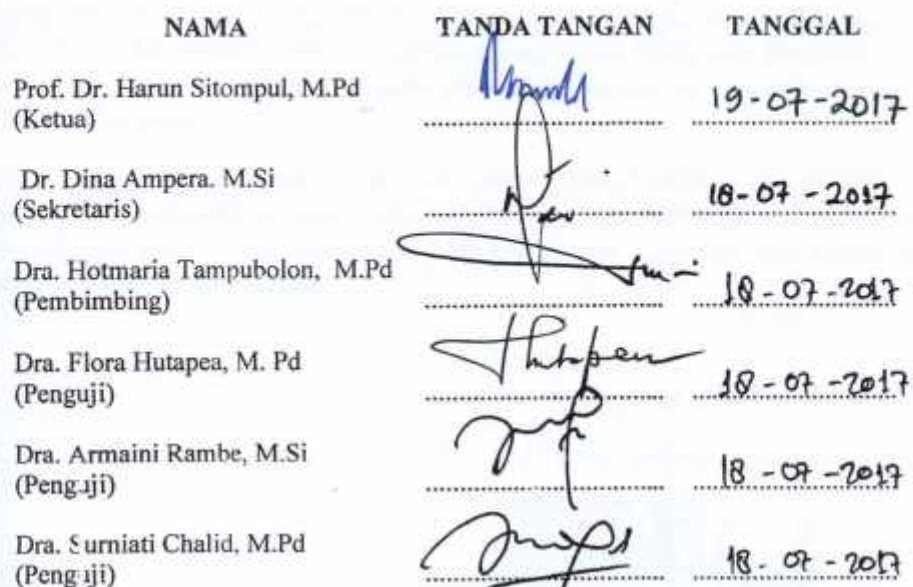 NAMA TANDA TANGAN TANGGAL
Prof. Dr. Harun Sitompul, M.Pd
(Ketua) 19-07-2017
Dr. Dina Ampera. M.Si
(Sekretaris) 18-07-2017
Dra. Hotmaria Tampubolon, M.Pd
(Pembimbing) 18-07-2017
Dra. Flora Hutapea, M. Pd
(Penguji) 18-07-2017
Dra. Armaini Rambe, M.Si
(Penguji) 18-07-2017
Dra. Surniati Chalid, M.Pd
(Penguji) 18-07-2017